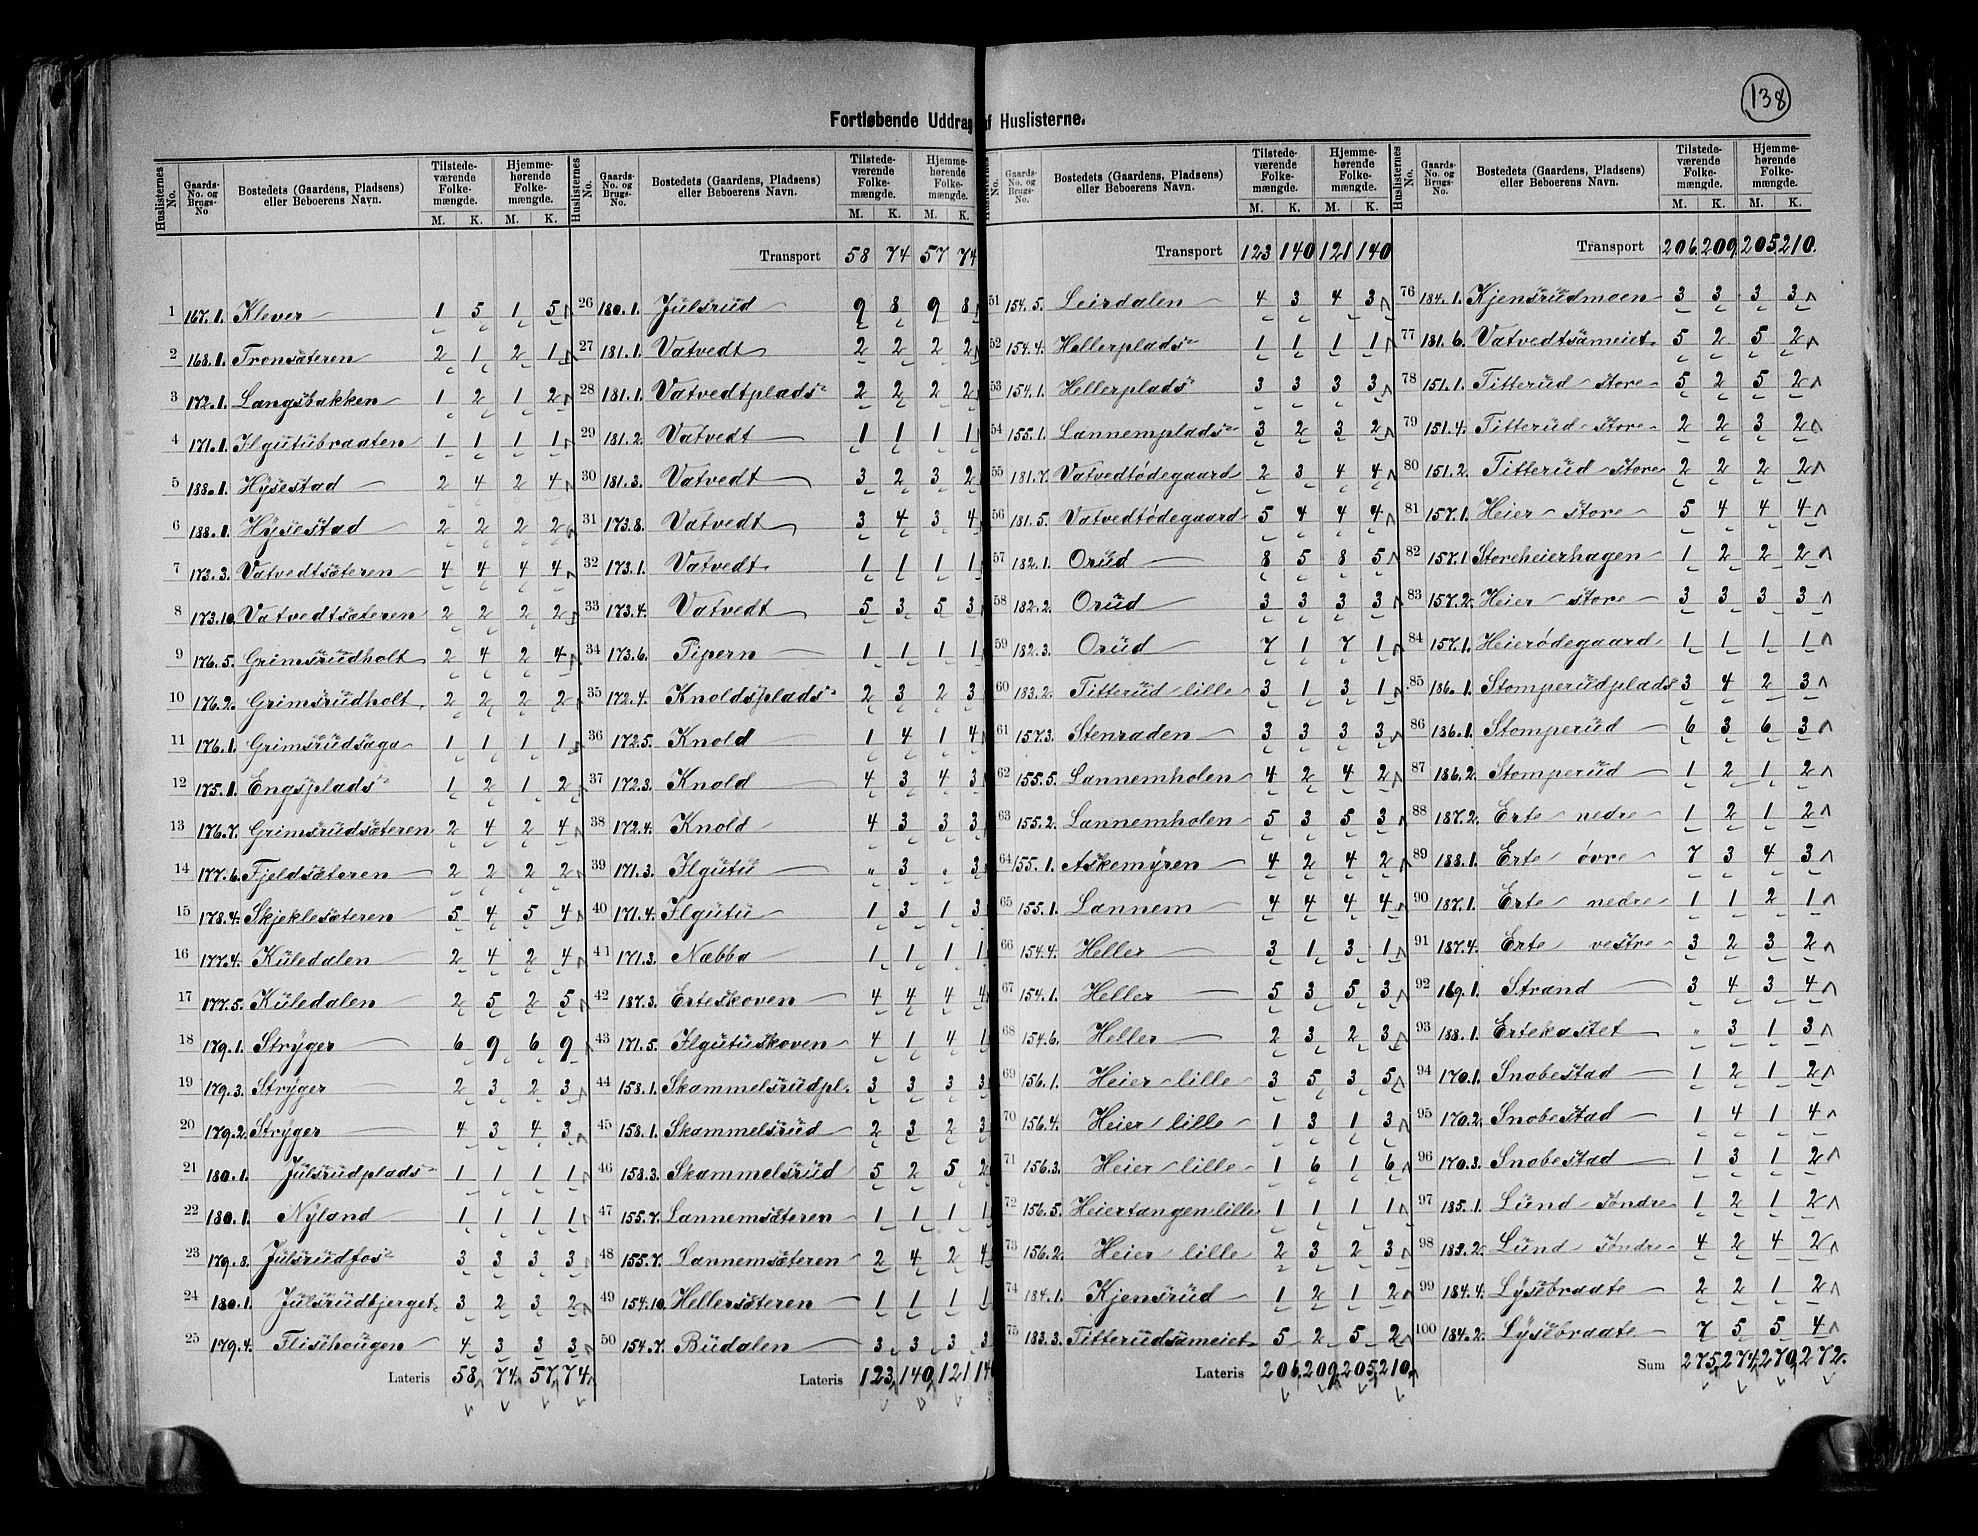 138
Fortløbende Uddrag af Huslisterne.
Huslisternes No. | Gaards-No. og Brugs-No | Bostedets (Gaardens, Pladsens) eller Beboerens Navn. | Tilstedeværende Folkemængde. M. K. | Hjemmehørende Folkemængde. M. K.
1 167.1. Klever 1 5 1 5
2 168.1. Tronsæteren 2 1 2 1
3 172.1. Langsbakken 1 2 1 2
4 171.1. Ilgutubraaten 1 1 1 1
5 188.1. Hysestad 2 4 2 4
6 188.1. Hysestad 2 2 2 2
7 173.3. Vatvedtsæteren 4 4 4 4
8 173.10. Vatvedtsæteren 2 2 2 2
9 176.5. Grimsrudholt 2 4 2 4
10 176.2. Grimsrudholt 2 2 2 2
11 176.1. Grimsrudsaga 1 1 1 1
12 175.1. Engsplads 1 2 1 2
13 176.7. Grimsrudsæteren 2 4 2 4
14 177.6. Fjeldsæteren 2 2 2 2
15 178.4. Skjeklesæteren 5 4 5 4
16 177.4. Kuledalen 2 4 2 4
17 177.5. Kuledalen 2 5 2 5
18 179.1. Stryger 6 9 6 9
19 179.3. Stryger 2 3 2 3
20 179.2. Stryger 4 3 4 3
21 180.1. Julsrudplads 1 1 1 1
22 180.1. Nyland 1 1 1 1
23 179.8. Julsrudfos 3 3 3 3
24 180.1. Julsrudbjerget 3 2 3 2
25 179.4. Flisehougen 4 3 3 3
Lateris 58 74 57 74
Huslisternes No. | Gaards-No. og Brugs-No. | Bostedets (Gaardens, Pladsens) eller Beboerens Navn. | Tilstedeværende Folkemængde. M. K. | Hjemmehørende Folkemængde. M. K.
Transport 58 74 57 74
26 180.1. Julsrud 9 8 9 8
27 181.1. Vatvedt 2 2 2 2
28 181.1. Vatvedtplads 2 2 2 2
29 181.2. Vatvedt 1 1 1 1
30 181.3. Vatvedt 3 2 3 2
31 173.8. Vatvedt 3 4 3 4
32 173.1. Vatvedt 1 1 1 1
33 173.4. Vatvedt 5 3 5 3
34 173.6. Pipern 1 1 1 1
35 172.4. Knoldsplads 2 3 2 3
36 172.5. Knold 1 4 1 4
37 172.3. Knold 4 3 4 3
38 172.4. Knold 4 3 3 3
39 171.3. Ilgutu " 3 " 3
40 171.4. Ilgutu 1 3 1 3
41 171.3. Næbba 1 1 1 1
42 187.3. Erteskoven 4 4 4 4
43 171.5. Ilgutuskoven 4 1 4 1
44 158.1. Skammelsrudpl. 3 3 3 3
45 158.1. Skammelsrud 2 3 2 3
46 158.3. Skammelsrud 5 2 5 2
47 155.7. Lannemsæteren 1 1 1 1
48 155.7. Lannemsæteren 2 4 2 4
49 154.10. Hellersæteren 1 1 1 1
50 154.7. Budalen 3 3 3 3
Lateris 123 140 121 140
Huslisternes No. | Gaards-No. og Brugs-No. | Bostedets (Gaardens, Pladsens) eller Beboerens Navn. | Tilstedeværende Folkemængde. M. K. | Hjemmehørende Folkemængde. M. K.
Transport 123 140 121 140
51 154.5. Leirdalen 4 3 4 3
52 154.4. Hellerplads 1 1 1 1
53 154.1. Hellerplads 3 3 3 3
54 155.1. Lannemplads 3 2 3 2
55 181.7. Vatvedtødegaard 2 3 4 4
56 181.5. Vatvedtødegaard 5 4 4 4
57 182.1. Orud 8 5 8 5
58 182.2. Orud 3 3 3 3
59 182.3. Orud 7 1 7 1
60 183.2. Titterud lille 3 1 3 1
61 157.3. Stenraden 3 3 3 3
62 155.5. Lannemholen 4 2 4 2
63 155.2. Lannemholen 5 3 5 3
64 155.1. Askemyren 4 2 4 2
65 155.1. Lannem 4 4 4 4
66 154.4. Heller 3 1 3 1
67 154.1. Heller 5 3 5 3
68 154.6. Heller 2 3 2 3
69 156.1. Heier lille 3 5 3 5
70 156.4. Heier lille 1 3 1 3
71 156.3. Heier lille 1 6 1 6
72 156.5. Heiertangen lille 1 1 1 1
73 156.2. Heier lille 2 3 2 3
74 184.1. Kjensrud 1 2 1 2
75 183.3. Titterudsameiet 5 2 5 2
Lateris 206 209 205 210
Huslisternes No. | Gaards-No. og Brugs-No. | Bostedets (Gaardens, Pladsens) eller Beboerens Navn. | Tilstedeværende Folkemængde. M. K. | Hjemmehørende Folkemængde. M. K.
Transport 206. 209. 205. 210.
76 184.1. Kjensrudmoen 3 3 3 3
77 181.6. Vatvedtsameiet 5 2 5 2
78 151.1. Titterud store 5 2 5 2
79 151.4. Titterud store 2 2 3 2
80 151.2. Titterud store 2 2 2 2
81 157.1. Heier store 5 4 4 4
82 157.1 Storeheierhagen 1 2 2 2
83 157.2. Heier store 3 3 3 3
84 157.1. Heierødegaard 1 1 1 1
85 186.1. Stomperudplads 3 4 2 3
86 186.1. Stomperud 6 3 6 3
87 186.2. Stomperud 1 2 1 2
88 187.2. Erte nedre 1 2 1 2
89 188.1. Erte øvre 7 3 4 3
90 187.1. Erte nedre 1 1 2 1
91 187.4. Erte vestre 3 2 3 2
92 169.1. Strand 3 4 3 4
93 188.1. Ertekastet " 3 1 3
94 170.1. Snobestad 1 2 1 2
95 170.2. Snobestad 1 4 1 4
96 170.3. Snobestad 1 3 1 2
97 185.1. Lund søndre 1 2 1 2
98 183.2. Lund søndre 4 2 4 2
99 184.4. Lysebraate 2 2 1 2
100 184.2. Lysebraate 7 5 5 4
Sum 275 274 270 272.